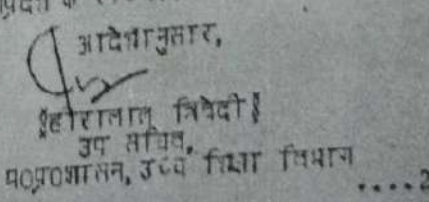 आदेशानुसार,
§हीरालाल त्रिवेदी§
उप सचिव,
म०प्र०शासन, उच्च शिक्षा विभाग
....2